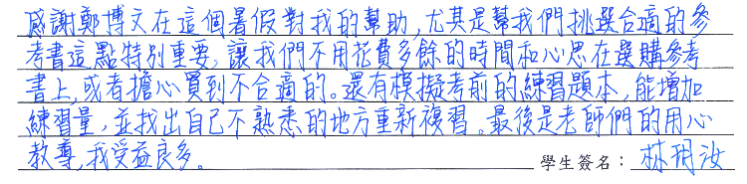 感謝鄭博文在這個暑假對我的幫助,尤其是幫我們挑選合適的參
考書這點特別重要,讓我們不用花費多餘的時間和心思在選購參考
書上,或者擔心買到不合適的。還有模擬考前的練習題本,能增加
練習量,並找出自己不熟悉的地方重新複習。最後是老師們的用心
教導,我受益良多。 學生簽名:林玥汝